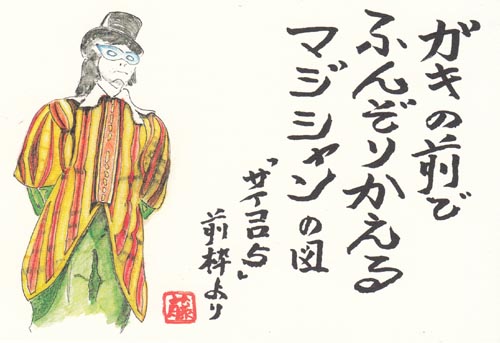 ガキの前で
ふんぞりかえる
マジシャンの図
「サイコロ5」
前枠より
藤